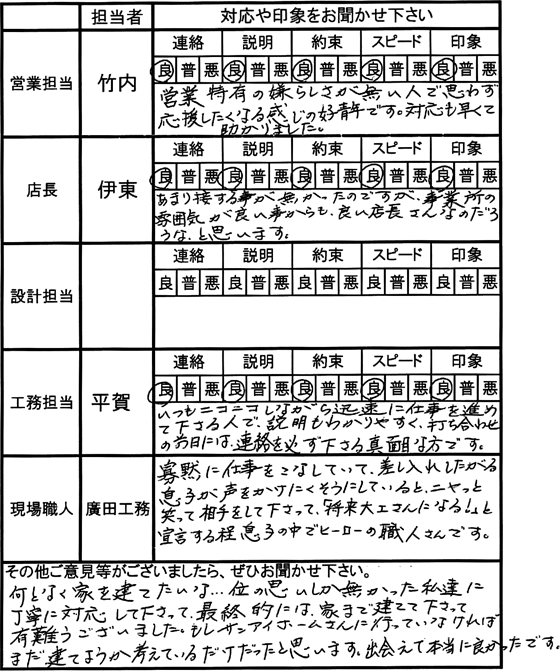 担当者 対応や印象をお聞かせ下さい
営業担当 竹内
連絡 説明 約束 スピード 印象
良 普 悪 良 普 悪 良 普 悪 良 普 悪 良 普 悪
営業特有の嫌らしさが無い人で思わず
応援したくなる感じの好青年です。対応も早くて
助かりました。
店長 伊東
連絡 説明 約束 スピード 印象
良 普 悪 良 普 悪 良 普 悪 良 普 悪 良 普 悪
あまり接する事が無かったのですが、事業所の
雰囲気が良い事からも、良い店長さんなのだろ
うな、と思います。
設計担当
連絡 説明 約束 スピード 印象
良 普 悪 良 普 悪 良 普 悪 良 普 悪 良 普 悪
工務担当 平賀
連絡 説明 約束 スピード 印象
良 普 悪 良 普 悪 良 普 悪 良 普 悪 良 普 悪
いつもニコニコしながら迅速に仕事を進め
て下さる人で、説明もわかりやすく、打ち合わせ
の前日には、連絡を必ず下さる真面目な方です。
現場職人 廣田工務
寡黙に仕事をこなしていて、差し入れしたがる
息子が声をかけにくそうにしていると、ニヤっと
笑って相手をして下さって、「将来大工さんになる!」と
宣言する程息子の中でヒーローの職人さんです。
その他ご意見等がございましたら、ぜひお聞かせ下さい。
何となく家を建てたいな…位の思いしか無かった私達に
丁寧に対応して下さって、最終的には、家まで建てて下さって
有難うございました。もしサンアイホームさんに行っていなければ
まだ建てようか考えているだけだったと思います。出会えて本当に良かったです。